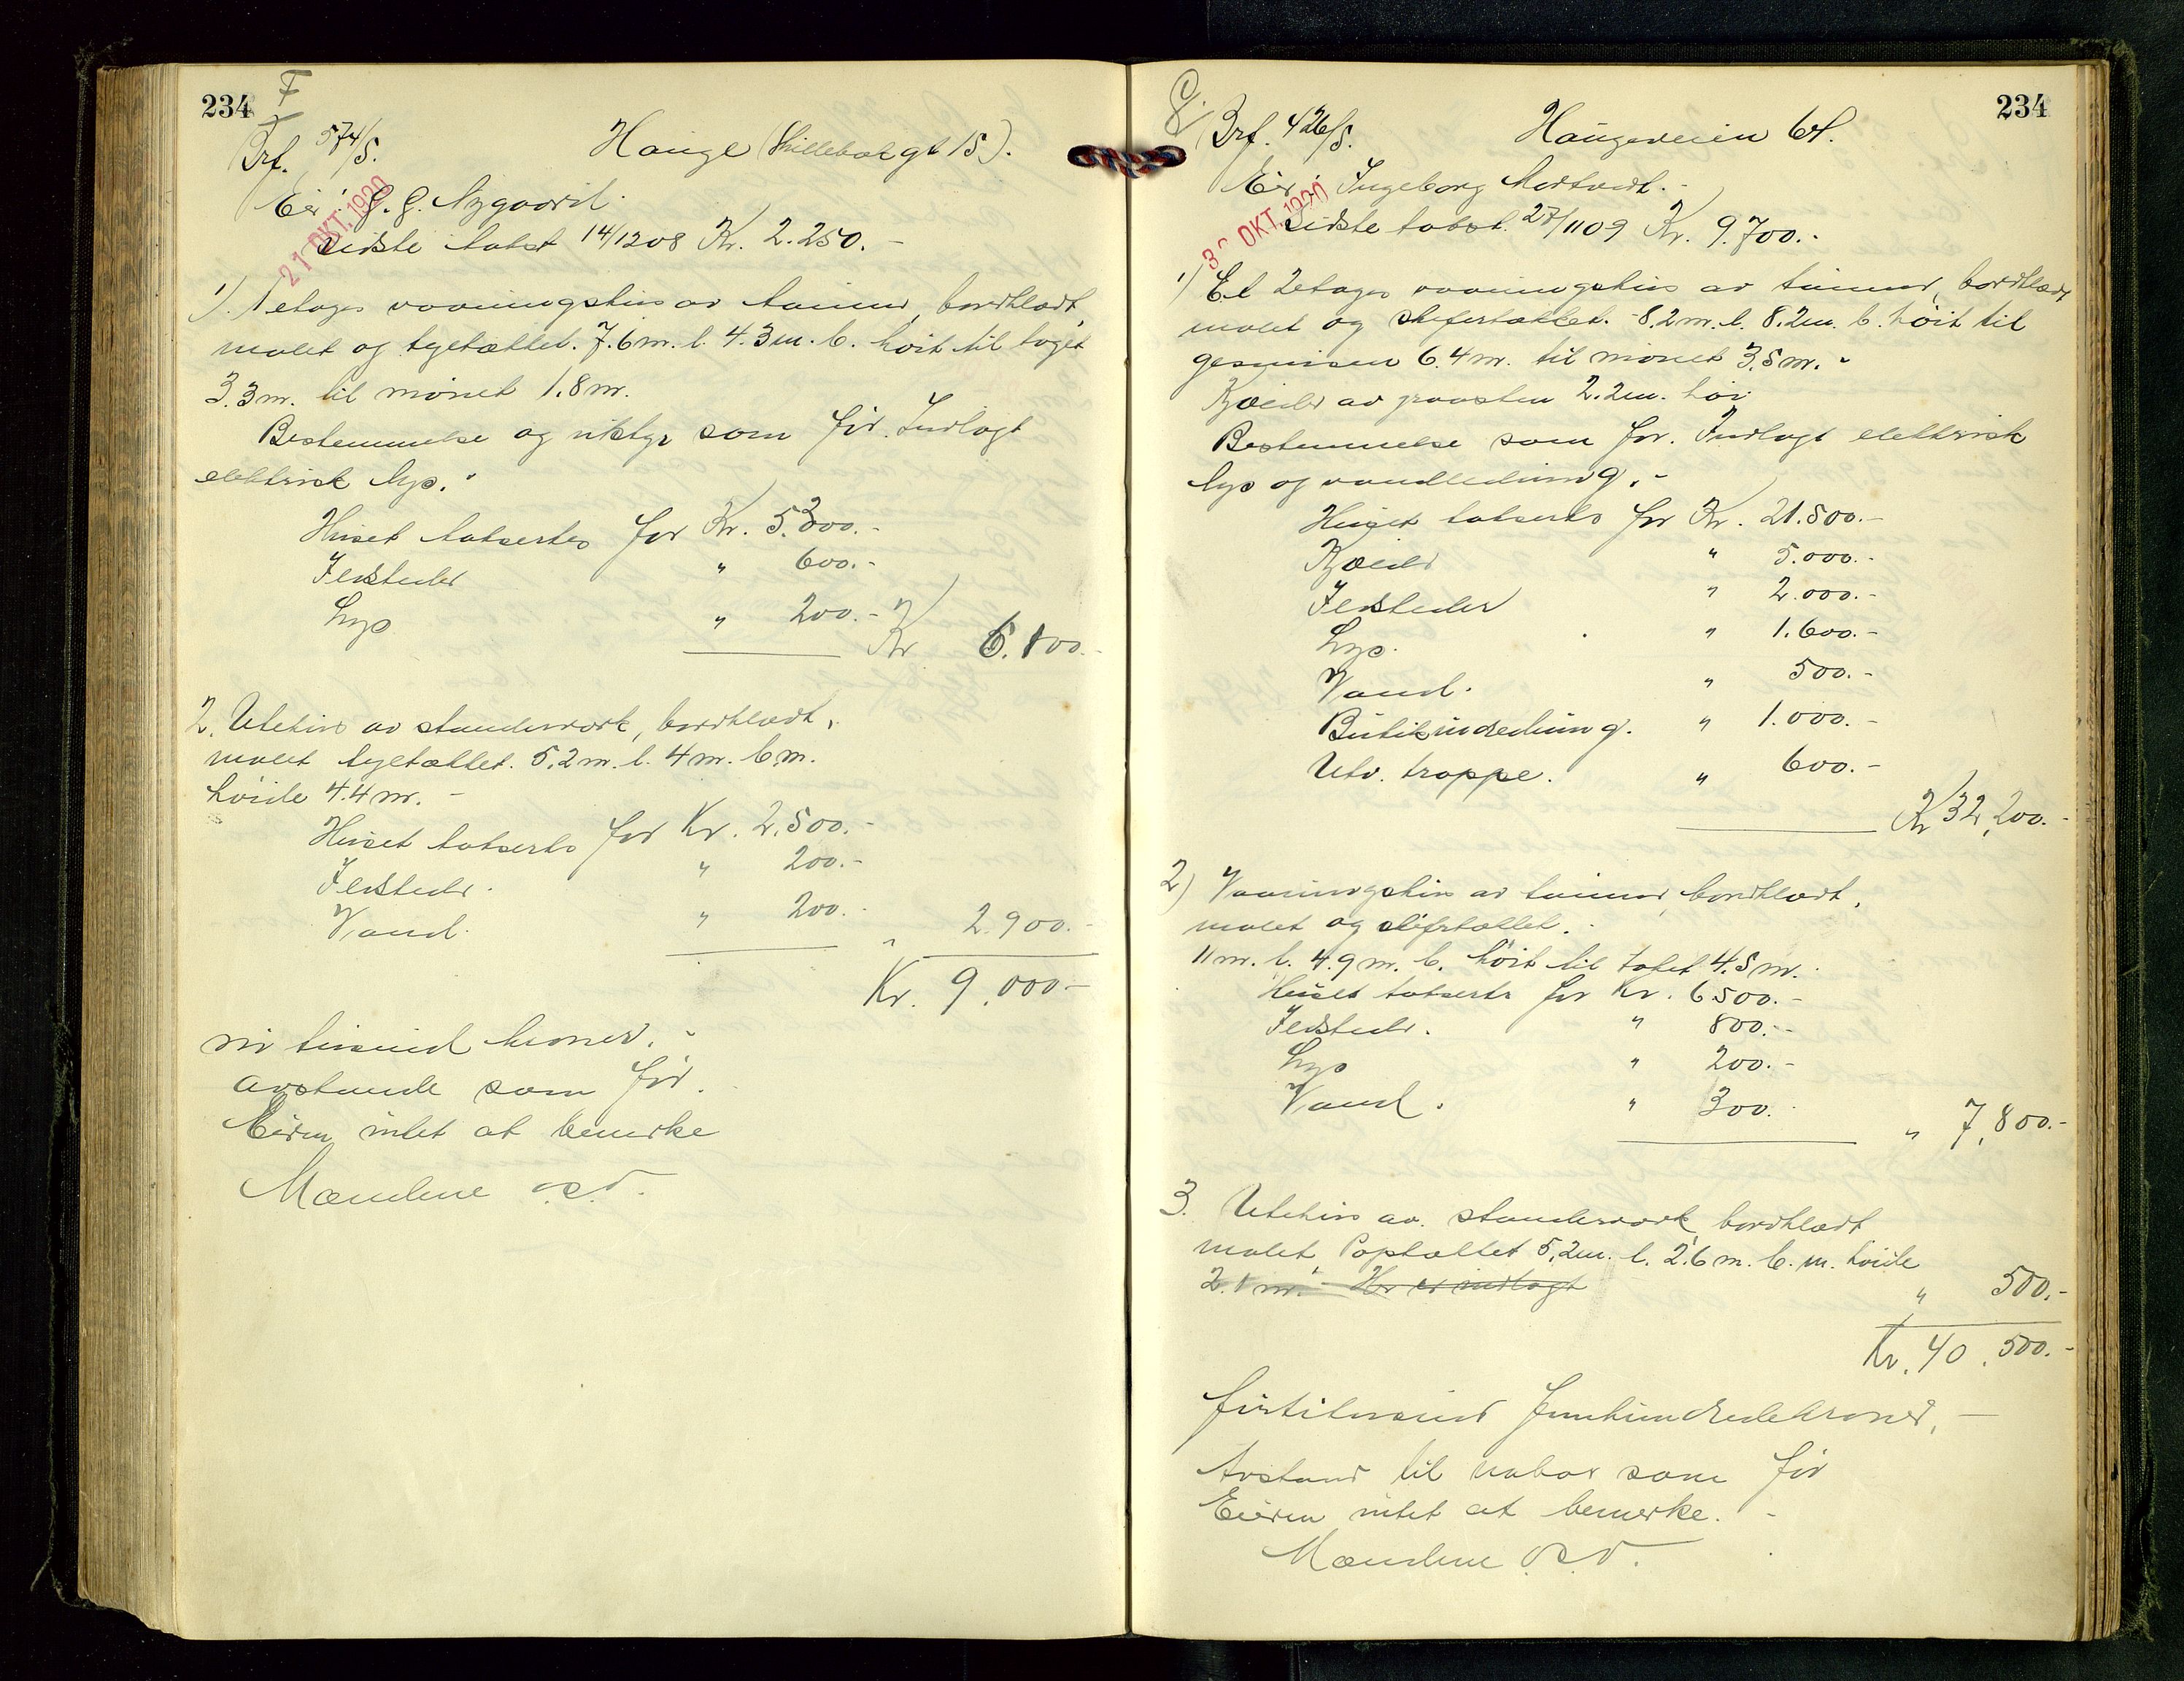 234
F
Brf. 574/5.
Hauge (Skillebæk gt 15).
Eier: G. G. Nygaard.
21 OKT. 1920
Sidste takst 14/1208 Kr. 2.250.-
1). 1 etages vaaningshus av tømmer, bordklædt,
malet og tegltækket. 7.6 m. l. 4.3 m. b. høit til taget
3.3 m. til mønet 1.8 m.
Bestemmelse og utstyr som før. Indlagt
elektrisk lys.
Huset takseres for Kr. 5.300.-
Ildsteder " 600.-
Lys " 200.-
Kr 6.100.-
2. Utehus av stenderverk, bordklædt,
malet tegltækket. 5.2 m. l. 4 m. b. m.
høide 4.4 m. -
Huset takseres for Kr. 2.500.-
Ildsteder. " 200.-
Vand. " 200.-
" 2.900.-
Kr. 9.000.-
ni tusind kroner.
Avstande som før.
Eieren intet at bemerke
Mændene o.s.v.
234
G.
Brf. 426/5.
Haugeveien 64.
Eier: Ingeborg Mortvedt.
30 OKT. 1920
Sidste takst. 27/1109 Kr. 9.700.-
1) Et 2 etages vaaningshus av tømmer, bordklædt
malet og skifertækket. 8.2 m. l. 8.2 m. b. høit til
gesimsen 6.4 m. til mønet 3.5 m.
Kjælder av graasten 2.2 m. høi
Bestemmelse som før. Indlagt elektrisk
lys og vandledning. -
Huset takseres for Kr. 21.500.-
Kjælder " 5.000.-
Ildsteder " 2.000.-
Lys. " 1.600.-
Vand. " 500.-
Butikinredning. " 1.000.-
Utv. trappe. " 600.-
Kr 32,200.-
2) Vaaningshus av tømmer, bordklædt,
malet og skifertækket.
11 m. l. 4.9 m. b. høit til taket 4.5 m.
Huset takseres for Kr. 6.500.-
Ildsteder. " 800.-
Lys " 200.-
Vand. " 300.-
" 7,800.-
3. Utehus av stenderverk, bordklædt
malet, Paptækket 5.2 m. l. 2.6 m. b. m. høide
2.1 m. - Her er indlagt
" 500.-
Kr. 40.500.-
firtitusind femhundredekroner, -
Avstand til naboer som før
Eieren intet at bemerke. -
Mændene o.s.v.